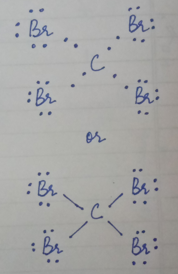 Br Br
C
Br Br
or
Br Br
C
Br Br